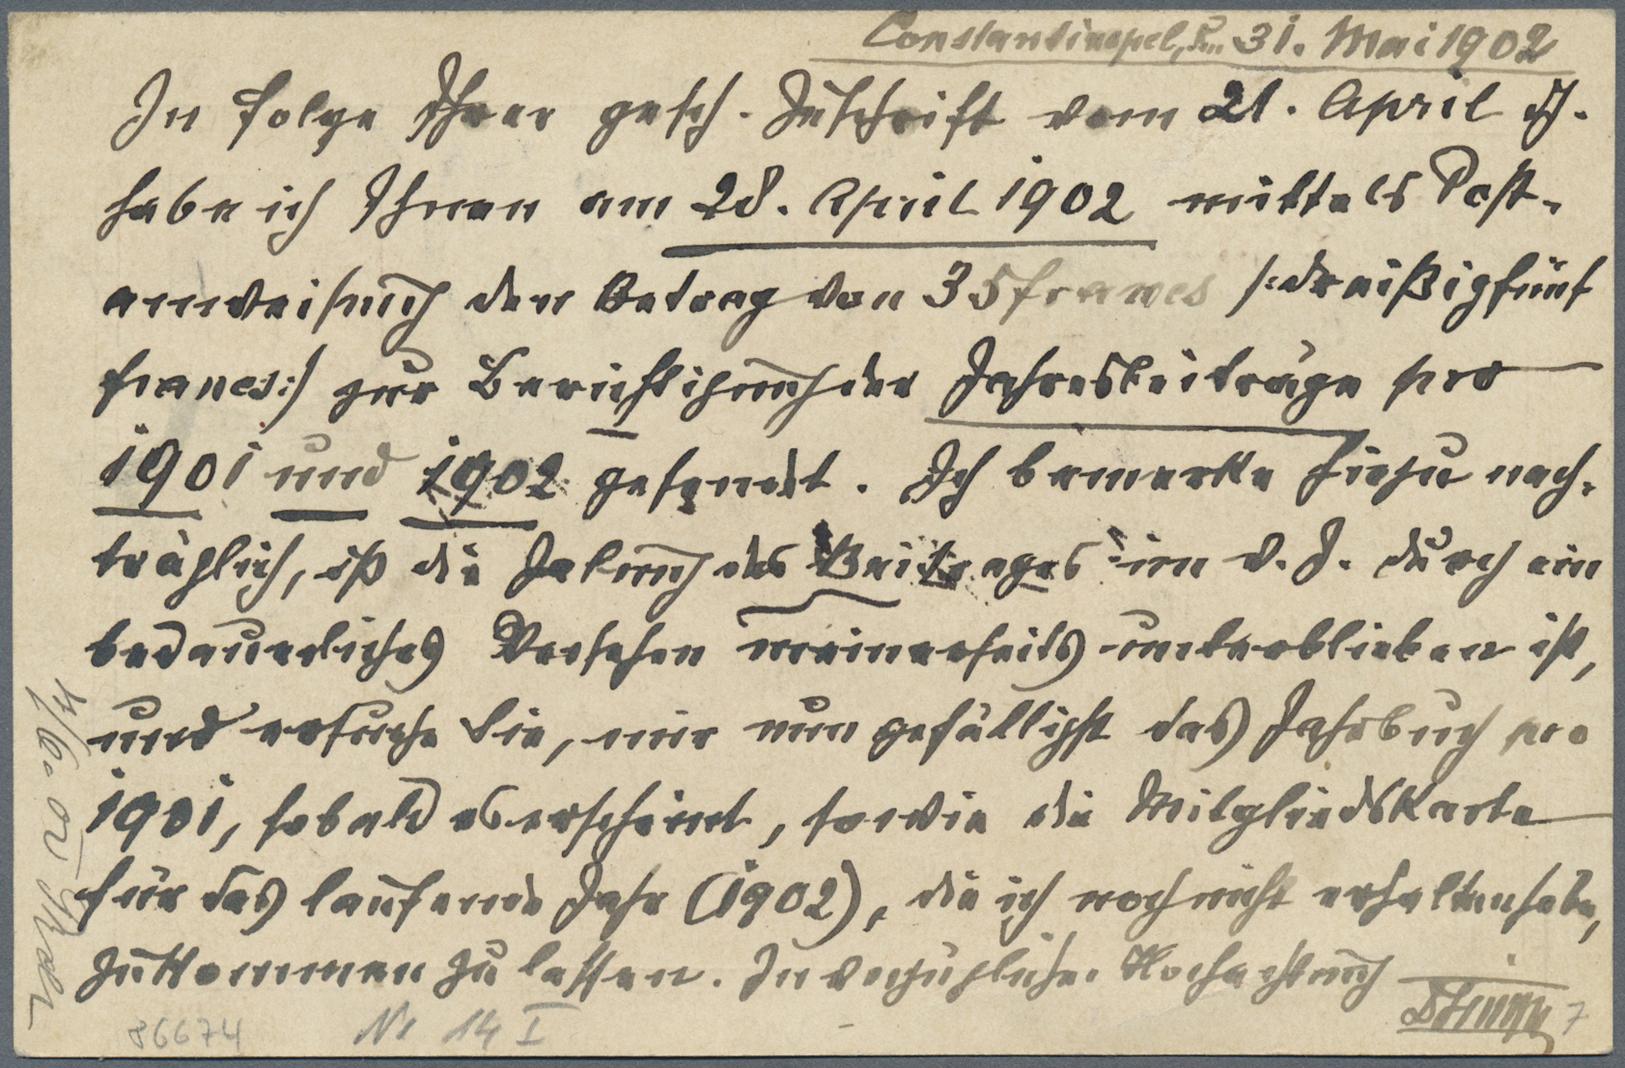 Constantinopel, den 31. Mai 1902
In Folge Ihrer gesch. Zuschrift vom 21. April d. J.
habe ich Ihnen am 28. April 1902 mittels Post-
anweisung den Betrag von 35 francs /:dreißigfünf
francs:/ zur Berichtigung der Jahresbeiträge pro
1901 und 1902 gesendet. Ich bemerke hiezu nach-
träglich, daß die Zalung des Beitrages im v. J. durch ein
bedauerliches Versehen meinerseits unterblieben ist,
und ersuche Sie, mir nun gefälligst das Jahrbuch pro
1901, sobald es erscheint, sowie die Mitgliedskarte
für das laufende Jahr (1902), die ich noch nicht erhalten habe,
zukommen zu lassen. In vorzüglicher Hochachtung
86674 No 14 I 7